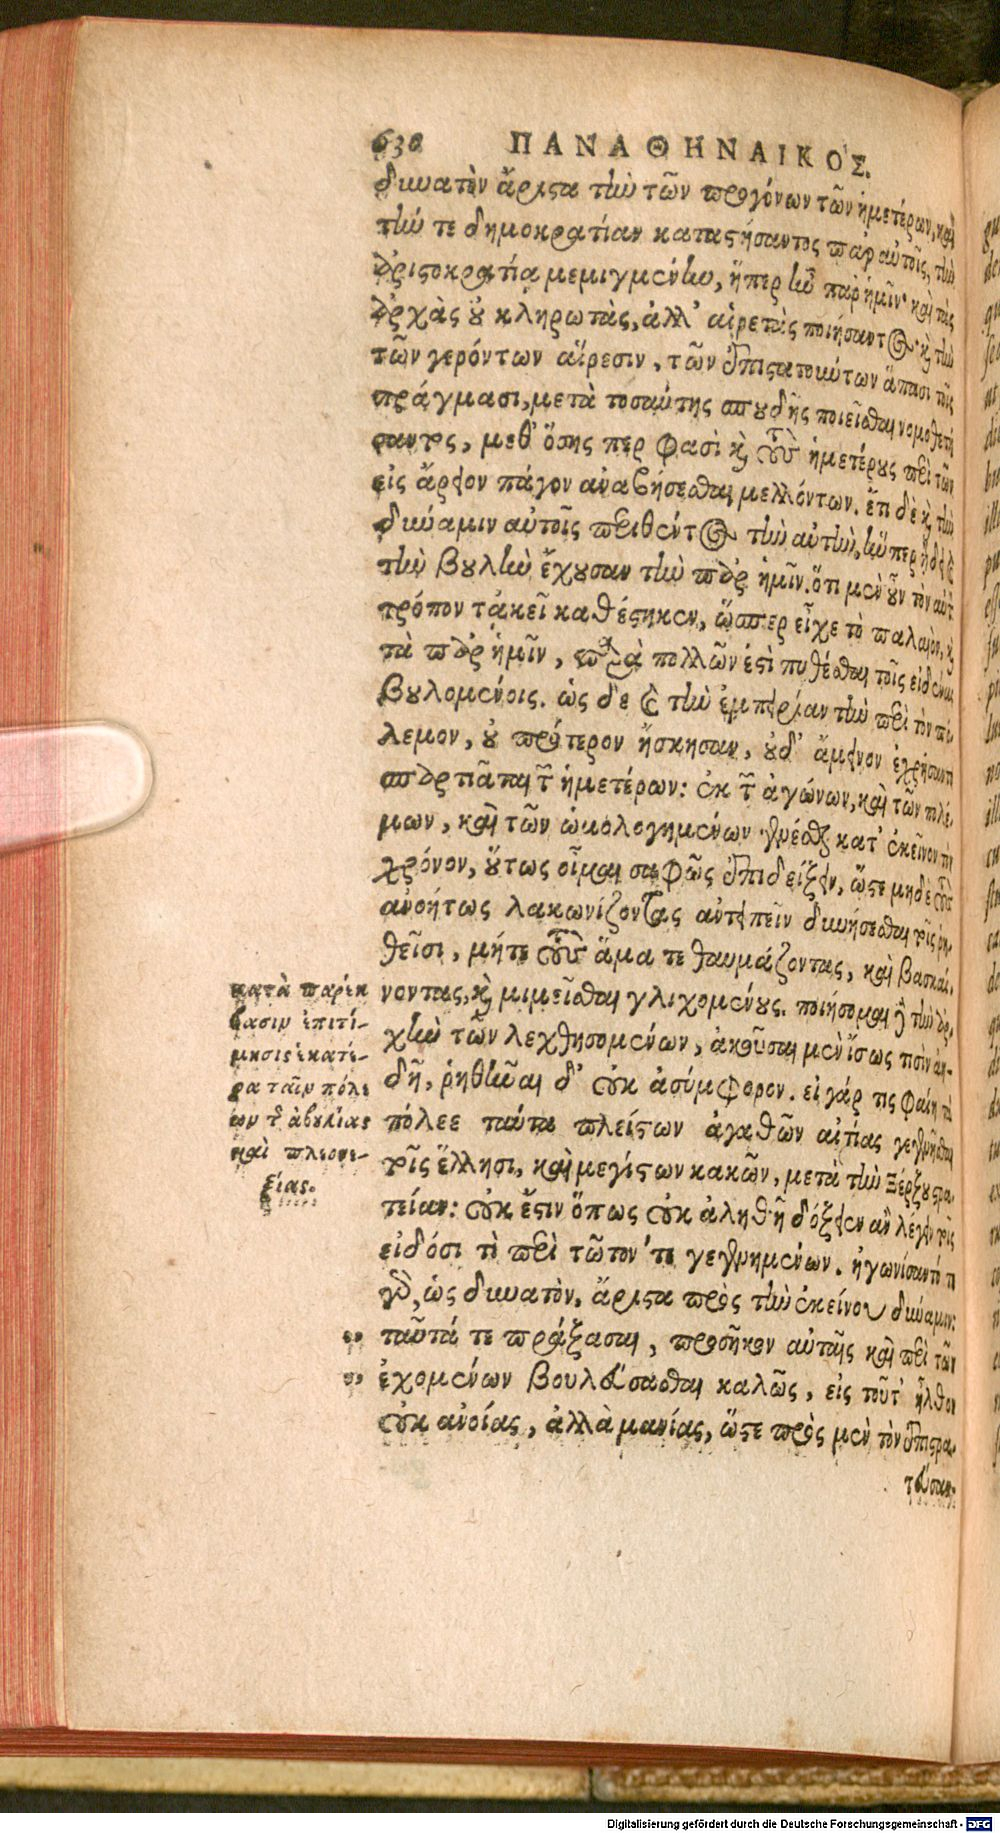 630 ΠΑΝΑΘΗΝΑΙΚΟΣ.
δυνατὸν ἄριστα τὴν τῶν προγόνων τῶν ἡμετέρων, καὶ
τήν τε δημοκρατίαν καταστήσαντος παρ' αὐτοῖς, τὴν
ἀριστοκρατία μεμιγμένην, ἥπερ ἦν παρ' ἡμῖν· καὶ τὰς
ἀρχὰς οὐ κληρωτὰς, ἀλλ' αἱρετὰς ποιήσαντος· καὶ τὴν
τῶν γερόντων αἵρεσιν, τῶν ἐπιστατούντων ἅπασι τοῖς
πράγμασι, μετὰ τοσαύτης σπουδῆς ποιεῖσθαι νομοθετή
σαντος, μεθ' ὅσης περ φασὶ καὶ τοὺς ἡμετέρους περὶ τῶν
εἰς ἄρειον πάγον ἀναβήσεσθαι μελλόντων. ἔτι δὲ καὶ τὴν
δύναμιν αὐτοῖς περιθέντος τὴν αὐτὴν, ἥνπερ ᾔδει καὶ
τὴν βουλὴν ἔχουσαν τὴν παρ' ἡμῖν. ὅτι μὲν οὖν τὸν αὐτὸν
τρόπον τἀκεῖ καθέστηκεν, ὥσπερ εἶχε τὸ παλαιὸν, καὶ
τὰ παρ' ἡμῖν, παρὰ πολλῶν ἐστὶ πυθέσθαι τοῖς εἰδέναι
βουλομένοις. ὡς δὲ καὶ τὴν ἐμπειρίαν τὴν περὶ τὸν πό-
λεμον, οὐ πρότερον ἤσκησαν, οὐδ' ἄμεινον ἐχρήσαντο
σπαρτιᾶται τῶν ἡμετέρων: ἐκ τῶν ἀγώνων, καὶ τῶν πολέ-
μων, καὶ τῶν ὡμολογημένων γενέσθαι κατ' ἐκεῖνον τὸν
χρόνον, οὕτως οἶμαι σαφῶς ἐπιδείξειν, ὥστε μηδὲ τοὺς
ἀνοήτως λακωνίζοντας ἀντειπεῖν δυνήσεσθαι τοῖς ῥη-
θεῖσι, μήτε τοὺς ἅμα τε θαυμάζοντας, καὶ βασκαί-
νοντας, καὶ μιμεῖσθαι γλιχομένους. ποιήσομαι δὲ τὴν ἀρ-
χὴν τῶν λεχθησομένων, ἀκοῦσαι μὲν ἴσως τισὶν ἀη-
δῆ, ῥηθῆναι δ' οὐκ ἀσύμφορον. εἰ γάρ τις φαίη τὼ
πόλεε ταύτα πλείστων ἀγαθῶν αἰτίας γεγενῆσθαι
τοῖς ἕλλησι, καὶ μεγίστων κακῶν, μετὰ τὴν Ξέρξου στρα-
τείαν: οὐκ ἔστιν ὅπως οὐκ ἀληθῆ δόξειεν ἂν λέγειν τοῖς
εἰδόσι τὶ περὶ τῶν τότε γεγενημένων. ἠγωνίσαντό τε
γὰρ, ὡς δυνατὸν, ἄριστα πρὸς τὴν ἐκείνου δύναμιν:
ταῦτά τε πράξασαι, προσῆκον αὐταῖς καὶ περὶ τῶν
ἐχομένων βουλεύσασθαι καλῶς, εἰς τοῦτ' ἦλθον
οὐκ ἀνοίας, ἀλλὰ μανίας, ὥστε πρὸς μὲν τὸν ἐπιστρα-
τεύσαν-
κατὰ παρέκ
βασιν ἐπιτί-
μησις ἑκατέ-
ρα ταῖν πόλε
ων τῆς ἀβουλίας
καὶ πλεονε-
ξίας.
Digitalisierung gefördert durch die Deutsche Forschungsgemeinschaft - DFG